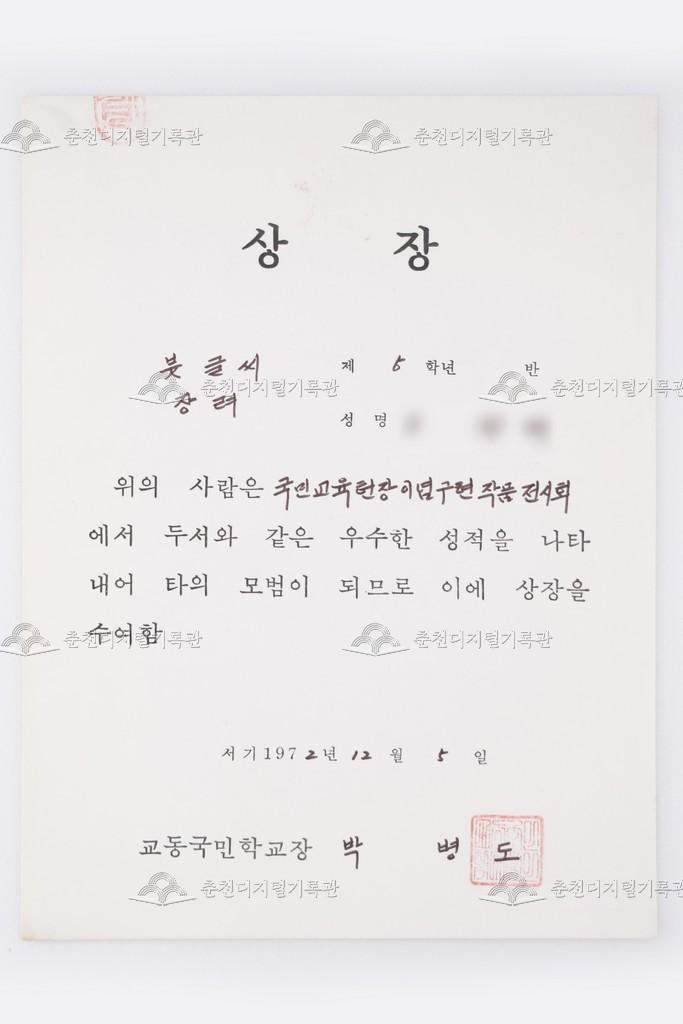 상 장
붓글씨 제 5 학년 반
장려 성 명
위의 사람은 국민교육헌장이념구현작품전시회
에서 두서와 같은 우수한 성적을 나타
내어 타의 모범이 되므로 이에 상장을
수여함
서기 1972년 12월 5일
교동국민학교장 박 병 도
춘천디지털기록관
춘천디지털기록관
춘천디지털기록관
춘천디지털기록관
춘천디지털기록관
춘천디지털기록관
춘천디지털기록관
춘천디지털기록관